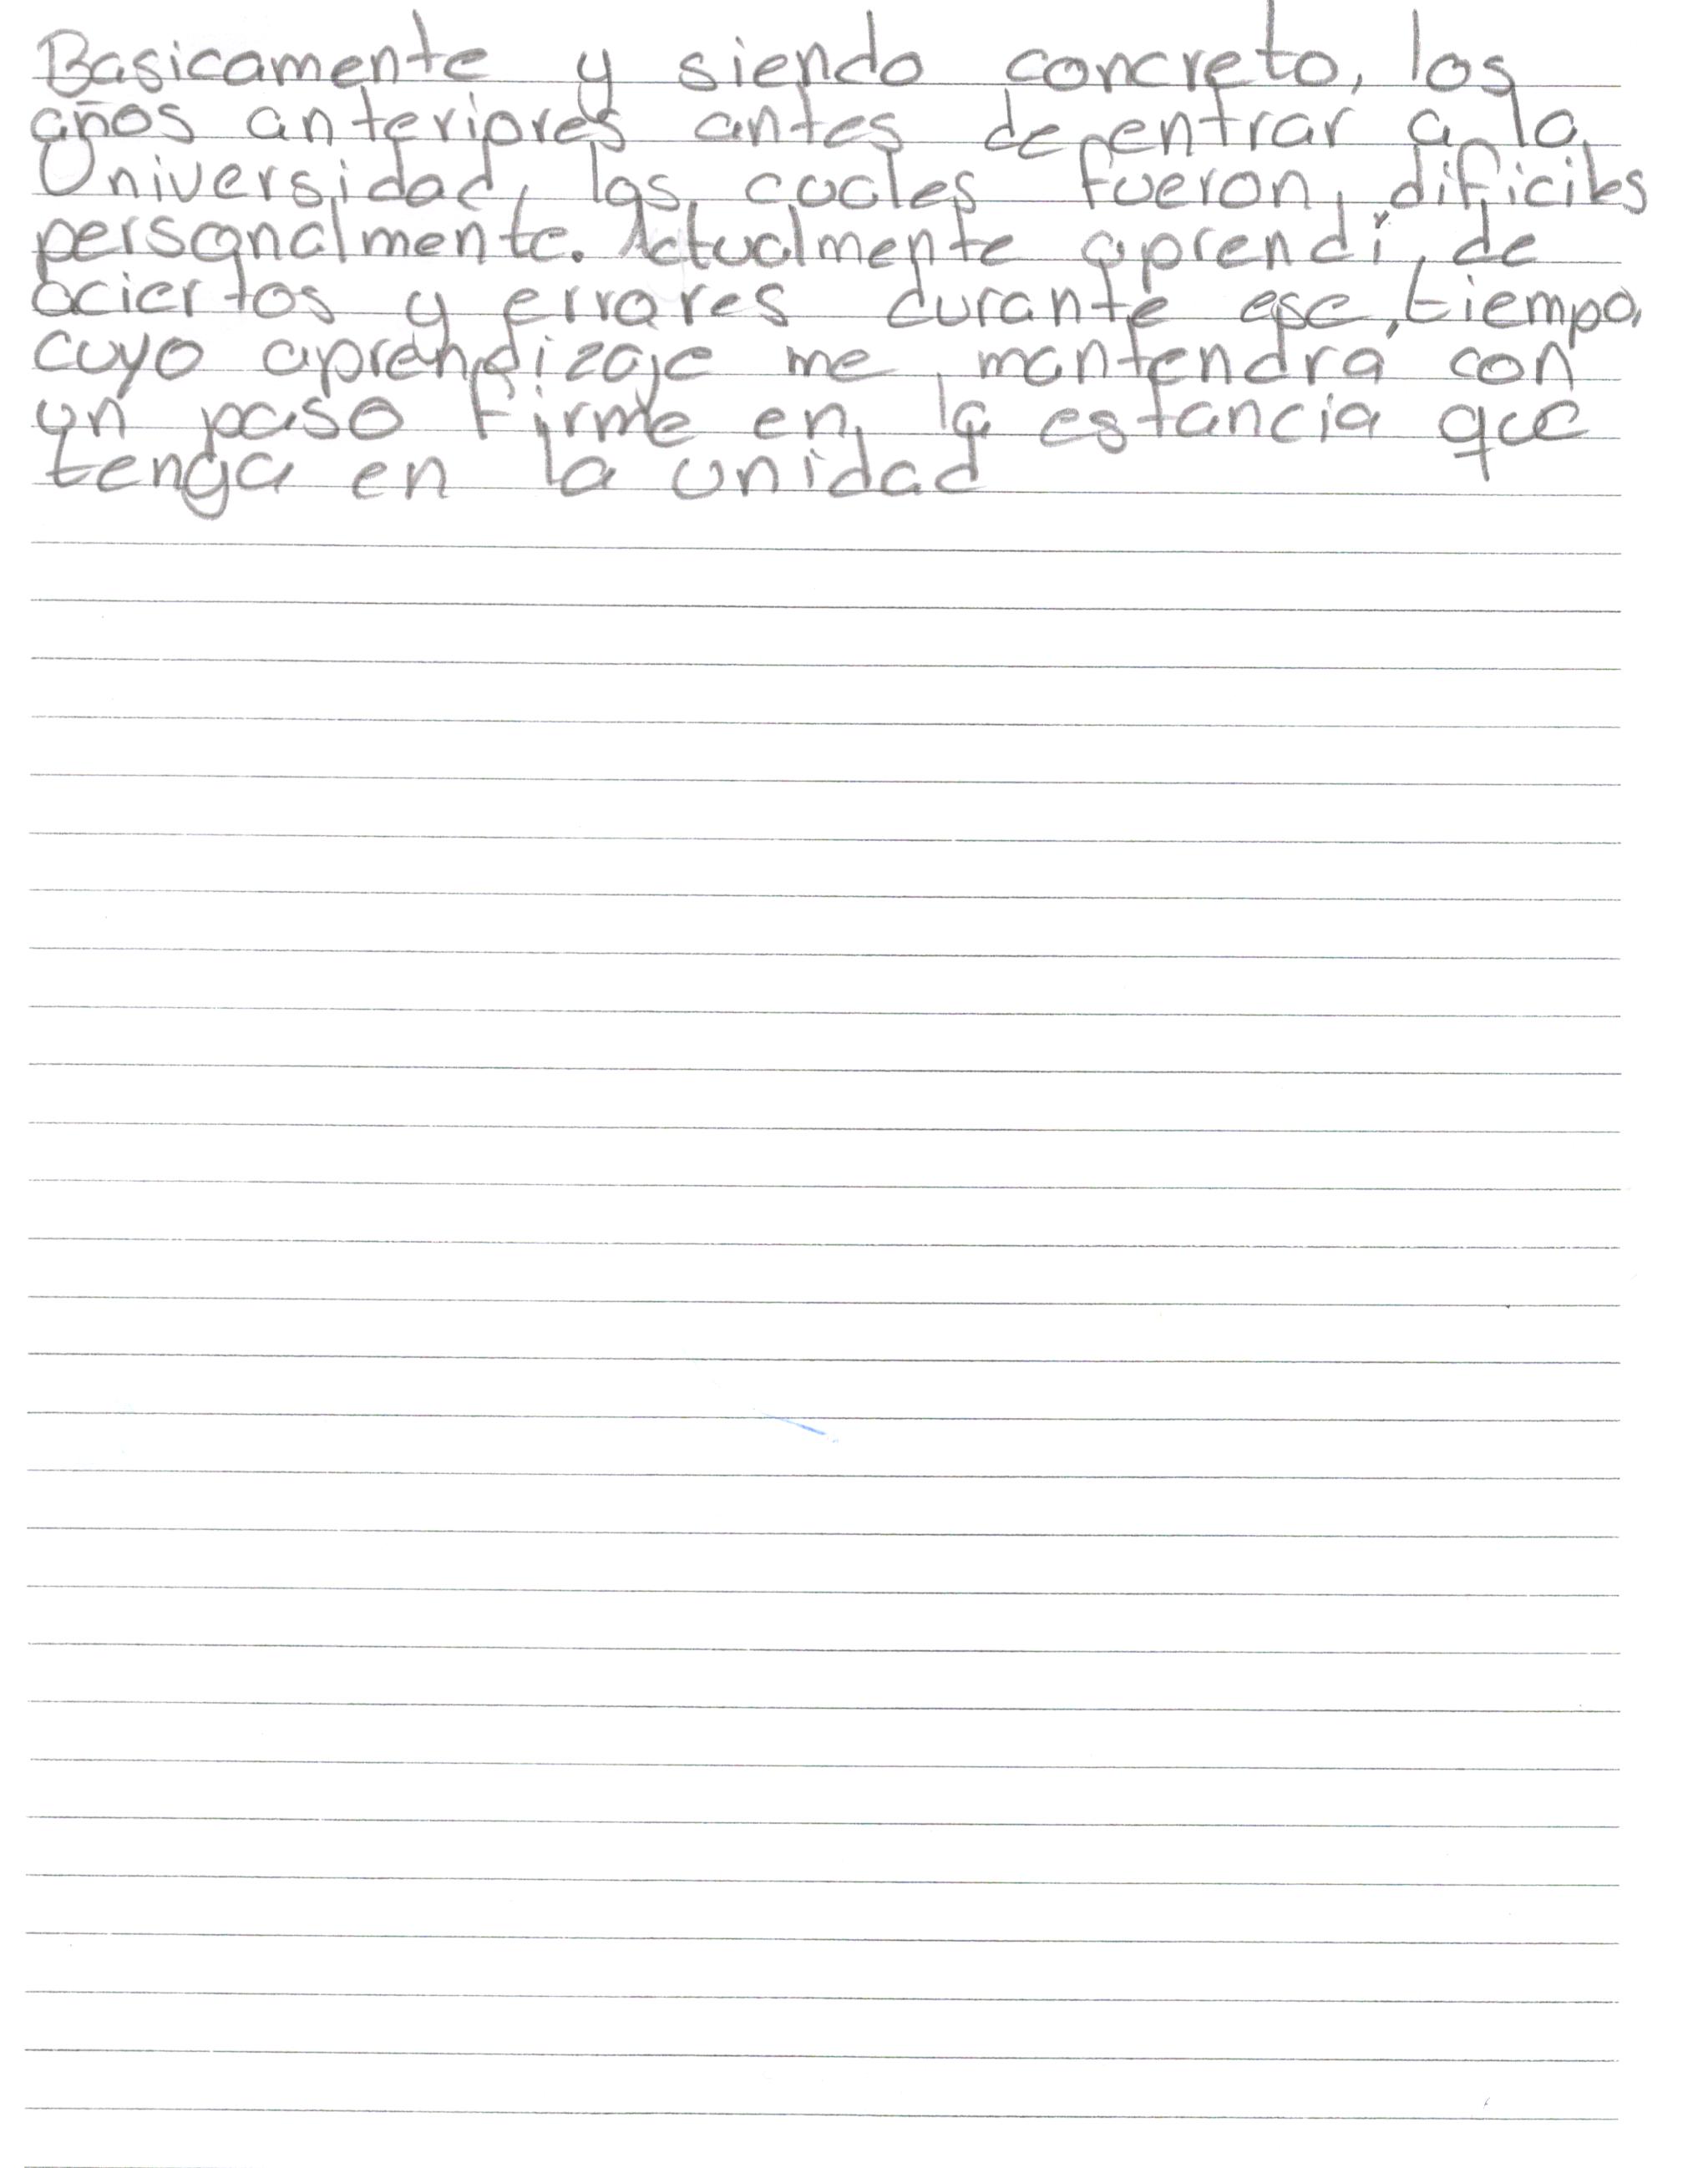 Basicamente y siendo concreto, los
años anteriores antes de entrar a la
Universidad, los cuales fueron dificiles
personalmente. Actualmente aprendí de
aciertos y errores durante ese tiempo,
cuyo aprendizaje me mantendrá con
un paso firme en la estancia que
tenga en la unidad